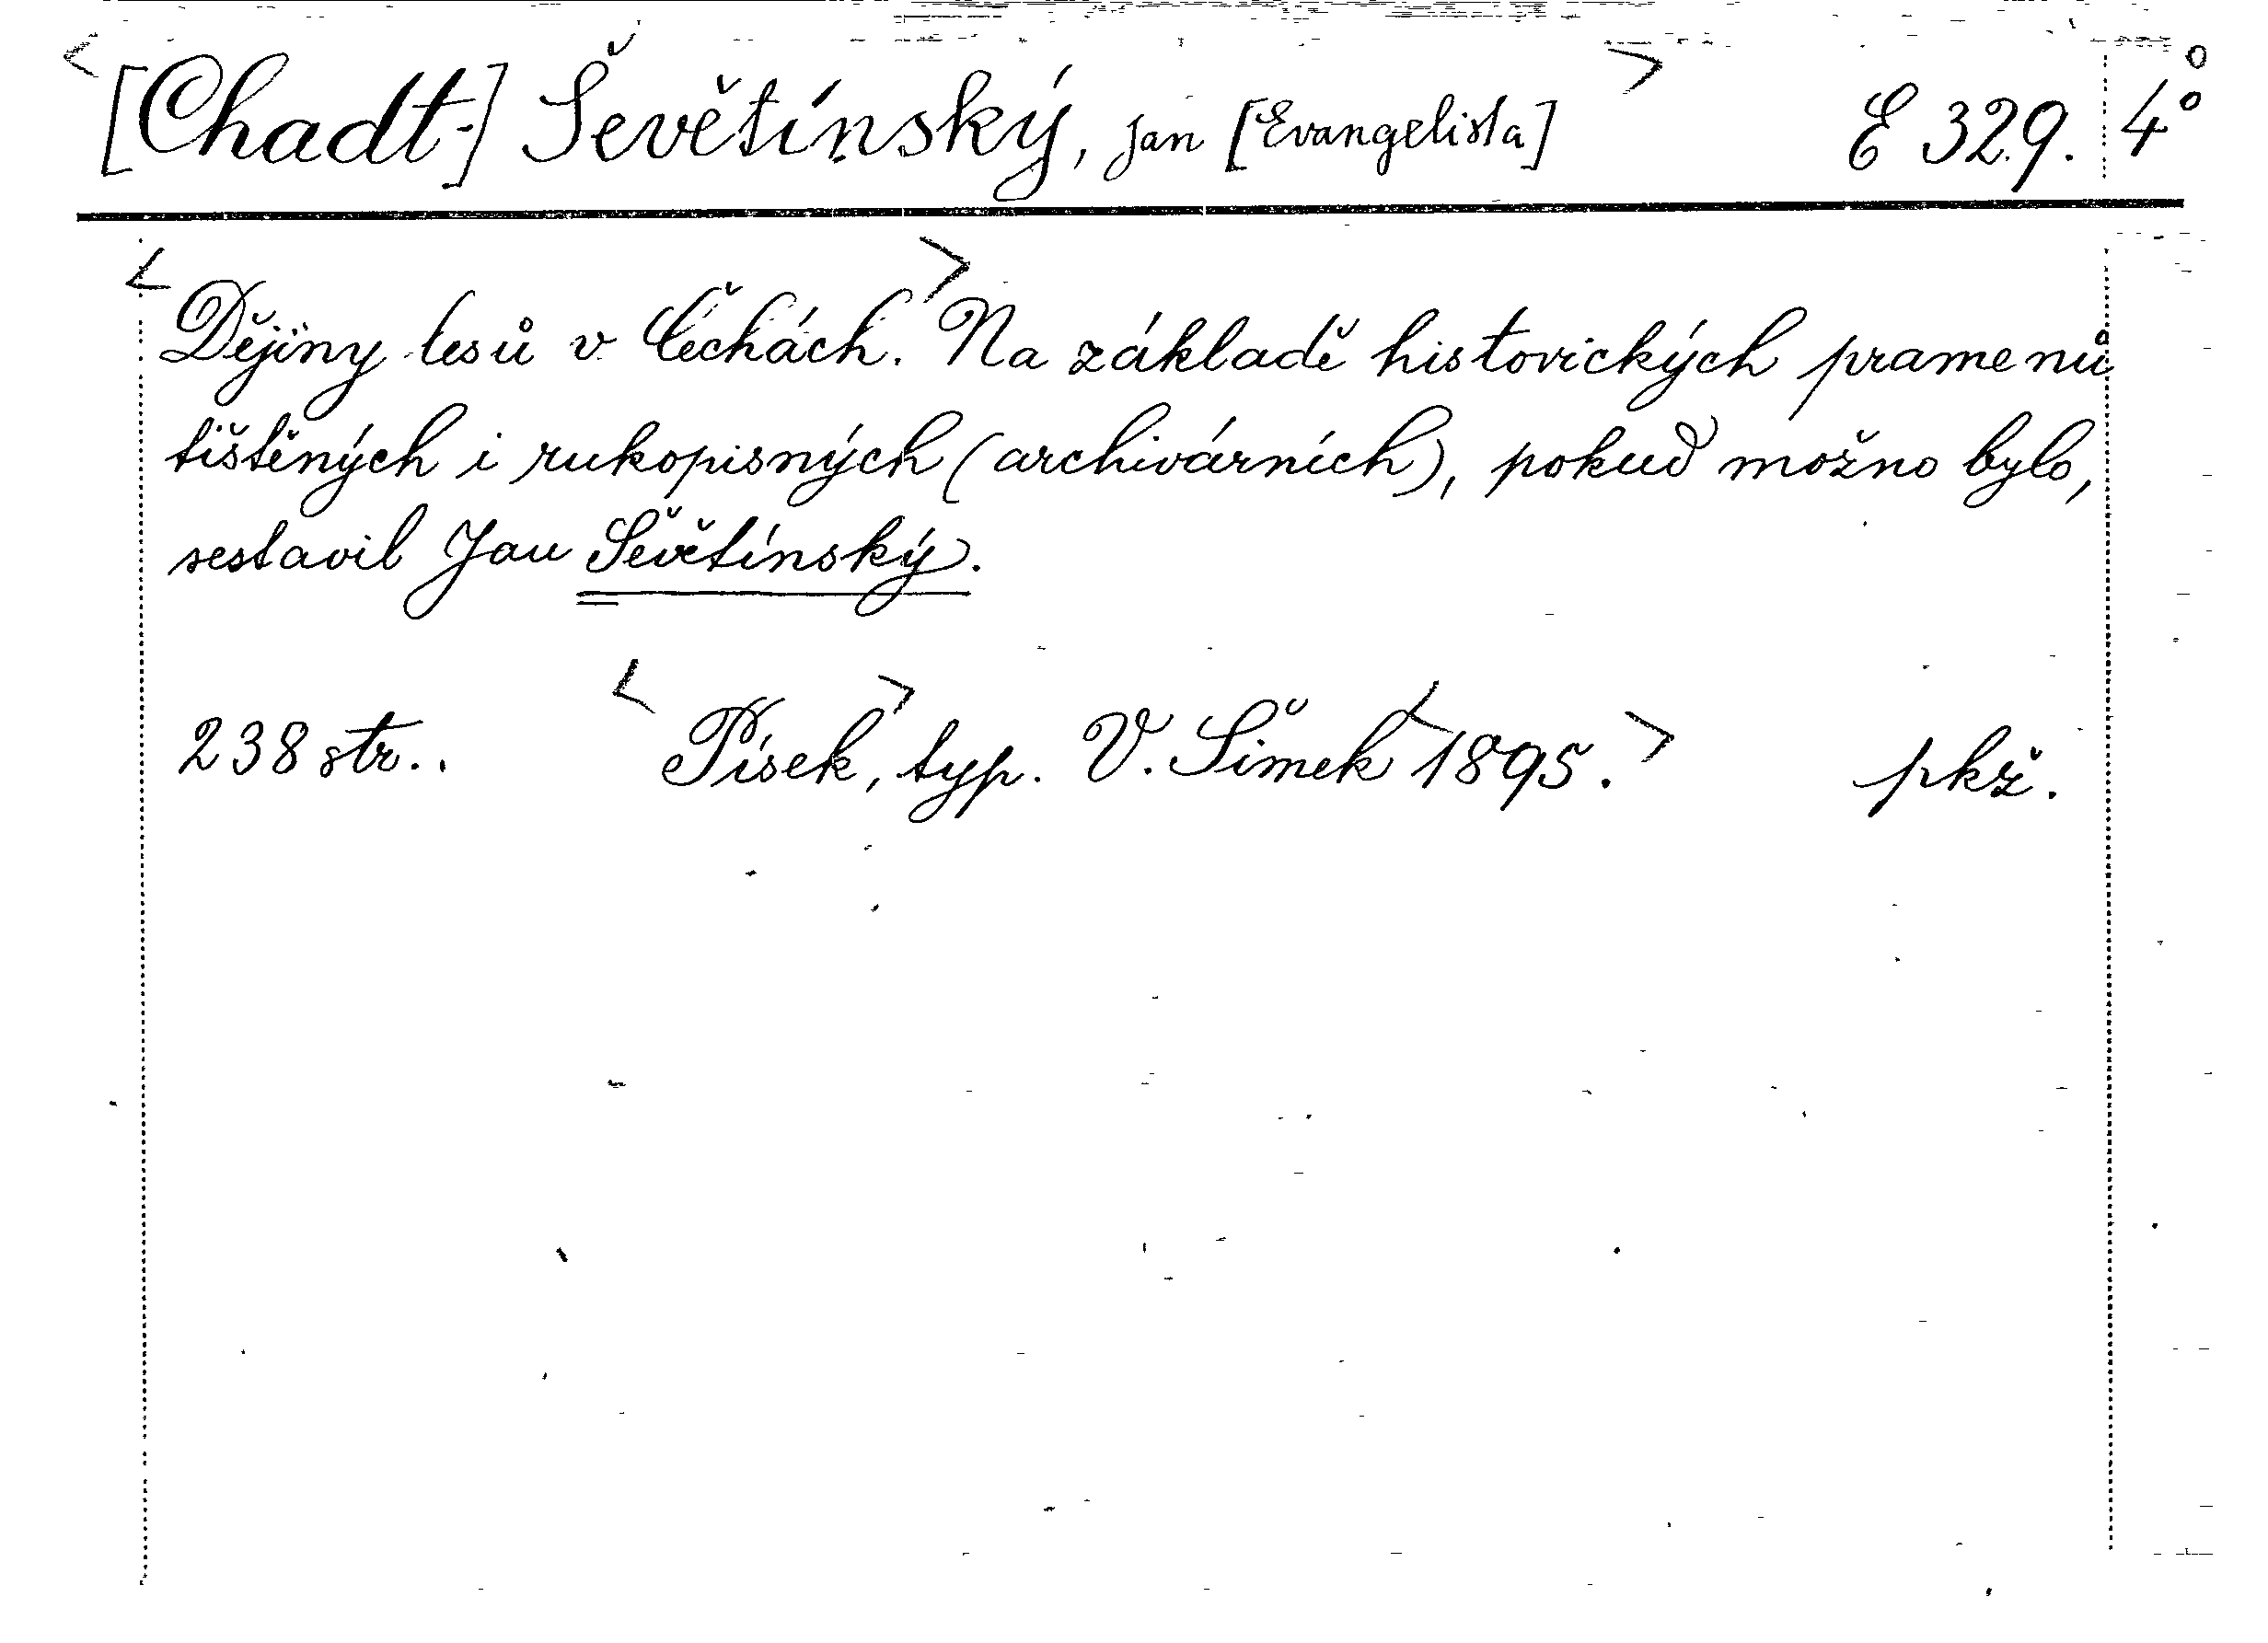 <[Chadt-] Ševětínský, Jan [Evangelista]> E 329. 4°
<Dějiny lesů v Čechách.> Na základě historických pramenů
tištěných i rukopisných (archivárních), pokud možno bylo,
sestavil Jan Ševětínský.
238 str.. <Písek,> typ. V. Šimek <1895.> pkž.